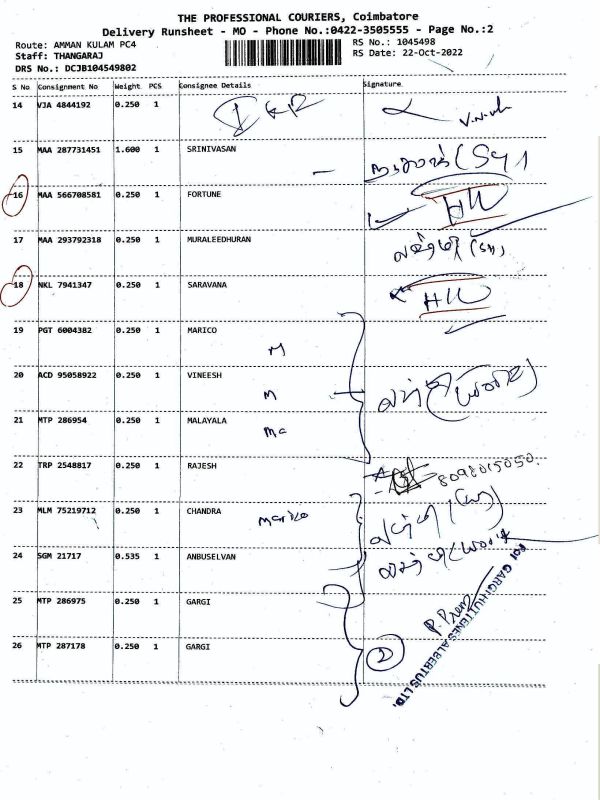 THE PROFESSIONAL COURIERS, Coimbatore
Delivery Runsheet - MO - Phone No.:0422-3505555 - Page No.:2
Route: AMMAN KULAM PC4
RS No.: 1045498
Staff: THANGARAJ
RS Date: 22-Oct-2022
DRS No.: DCJB104549802
S No Consignment No Weight PCS Consignee Details Signature
14 VJA 4844192 0.250 1
15 MAA 287731451 1.600 1 SRINIVASAN
16 MAA 566708581 0.250 1 FORTUNE HW
17 MAA 293792318 0.250 1 MURALEEDHURAN
18 NKL 7941347 0.250 1 SARAVANA HW
19 PGT 6004382 0.250 1 MARICO
M
20 ACD 95058922 0.250 1 VINEESH
M
21 MTP 286954 0.250 1 MALAYALA
Ma
22 TRP 2548817 0.250 1 RAJESH 8098015050.
23 MLM 75219712 0.250 1 CHANDRA
marico
24 SGM 21717 0.535 1 ANBUSELVAN
25 MTP 286975 0.250 1 GARGI
26 MTP 287178 0.250 1 GARGI 2
For GARGI HUTTENES ALBERTUS LTD.